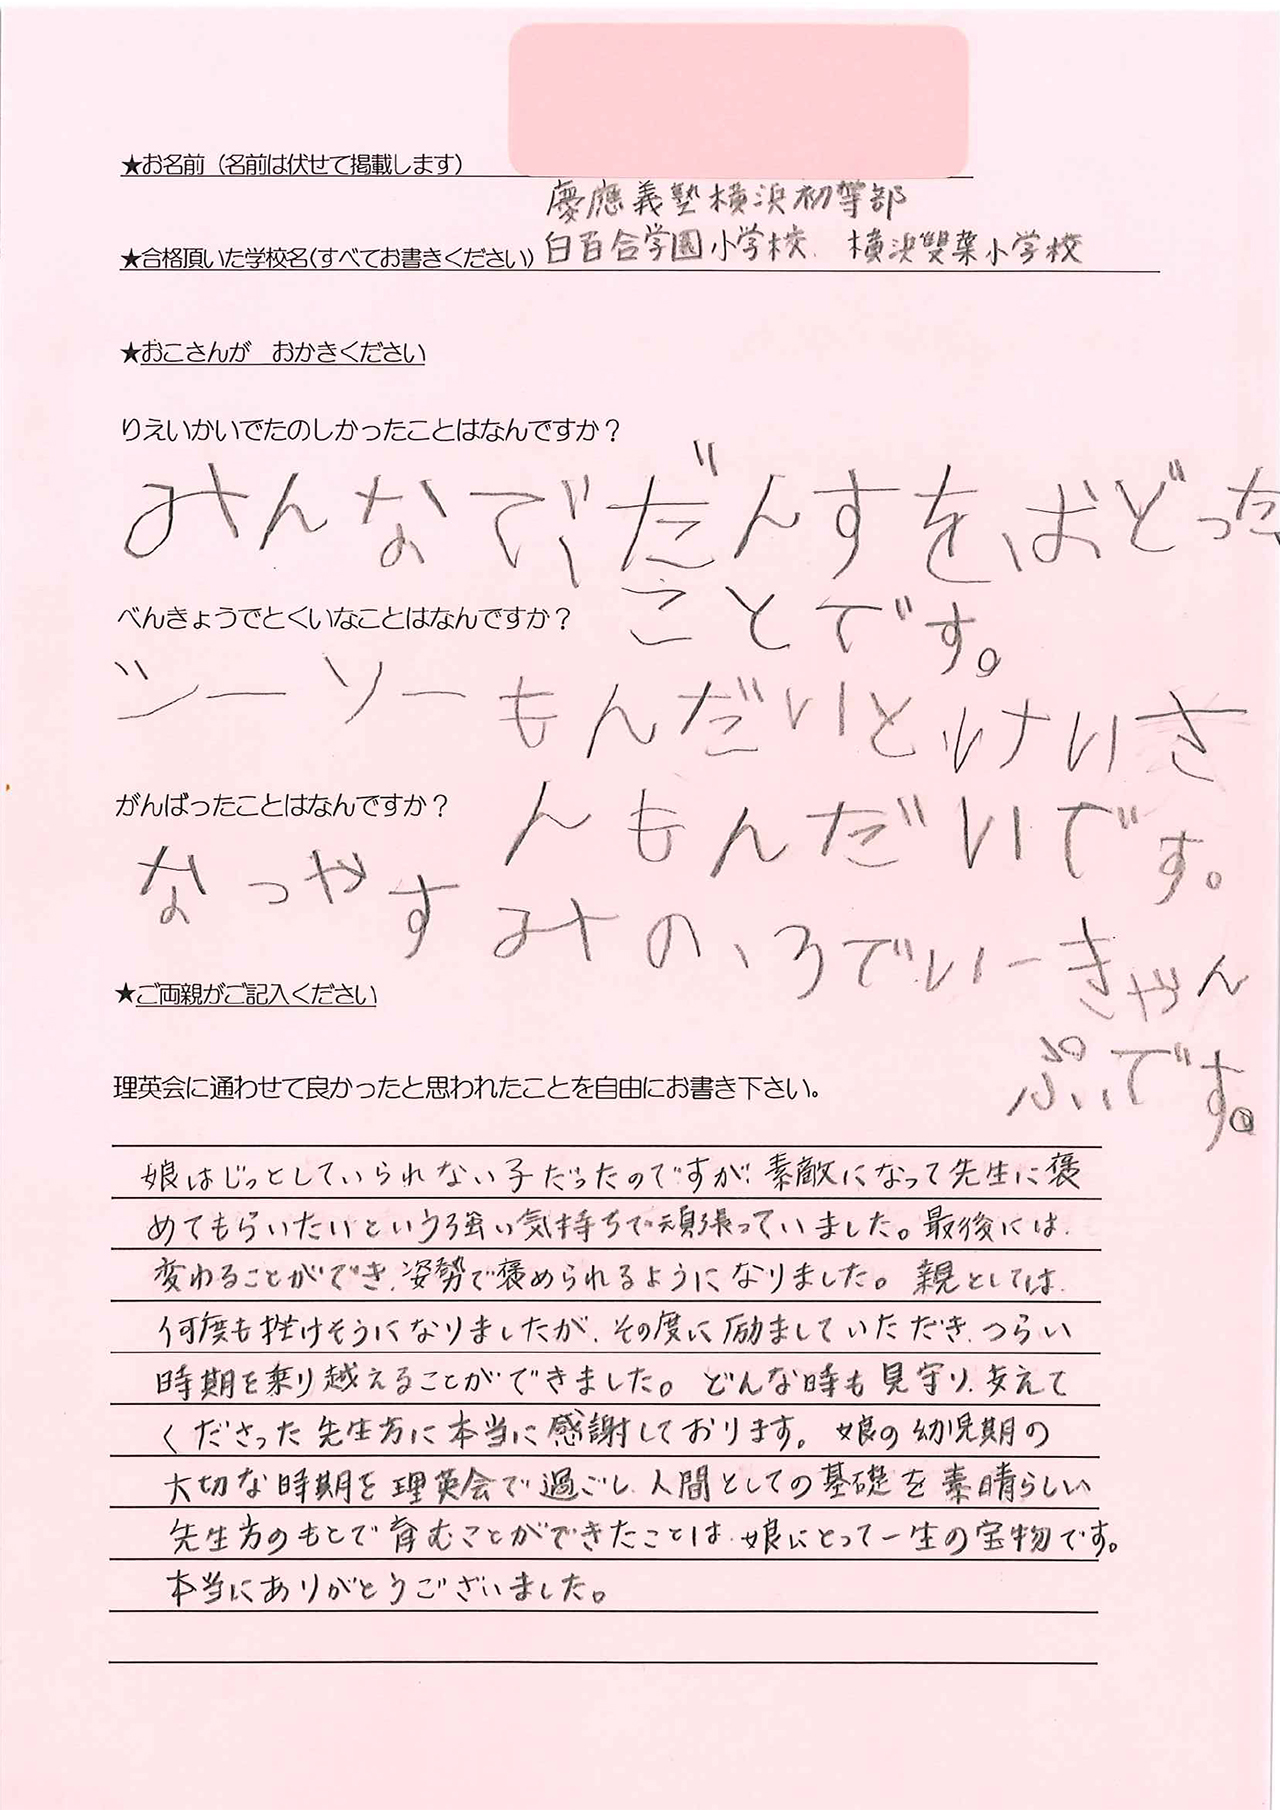 ★お名前（名前は伏せて掲載します）
慶應義塾横浜初等部
★合格頂いた学校名(すべてお書きください) 白百合学園小学校、横浜雙葉小学校
★おこさんが　おかきください
りえいかいでたのしかったことはなんですか？
みんなで、だんすを、おどった
ことです。
べんきょうでとくいなことはなんですか？
シーソーもんだいとけいさ
んもんだいです。
がんばったことはなんですか？
なつやすみの、ろでぃーきゃん
ぷです。
★ご両親がご記入ください
理英会に通わせて良かったと思われたことを自由にお書き下さい。
娘はじっとしていられない子だったのですが、素敵になって先生に褒
めてもらいたいという強い気持ちで頑張っていました。最後には、
変わることができ、姿勢で褒められるようになりました。親としては、
何度も挫けそうになりましたが、その度に励ましていただき、つらい
時期を乗り越えることができました。どんな時も見守り、支えて
くださった先生方に本当に感謝しております。娘の幼児期の
大切な時期を理英会で過ごし、人間としての基礎を素晴らしい
先生方のもとで育むことができたことは、娘にとって一生の宝物です。
本当にありがとうございました。